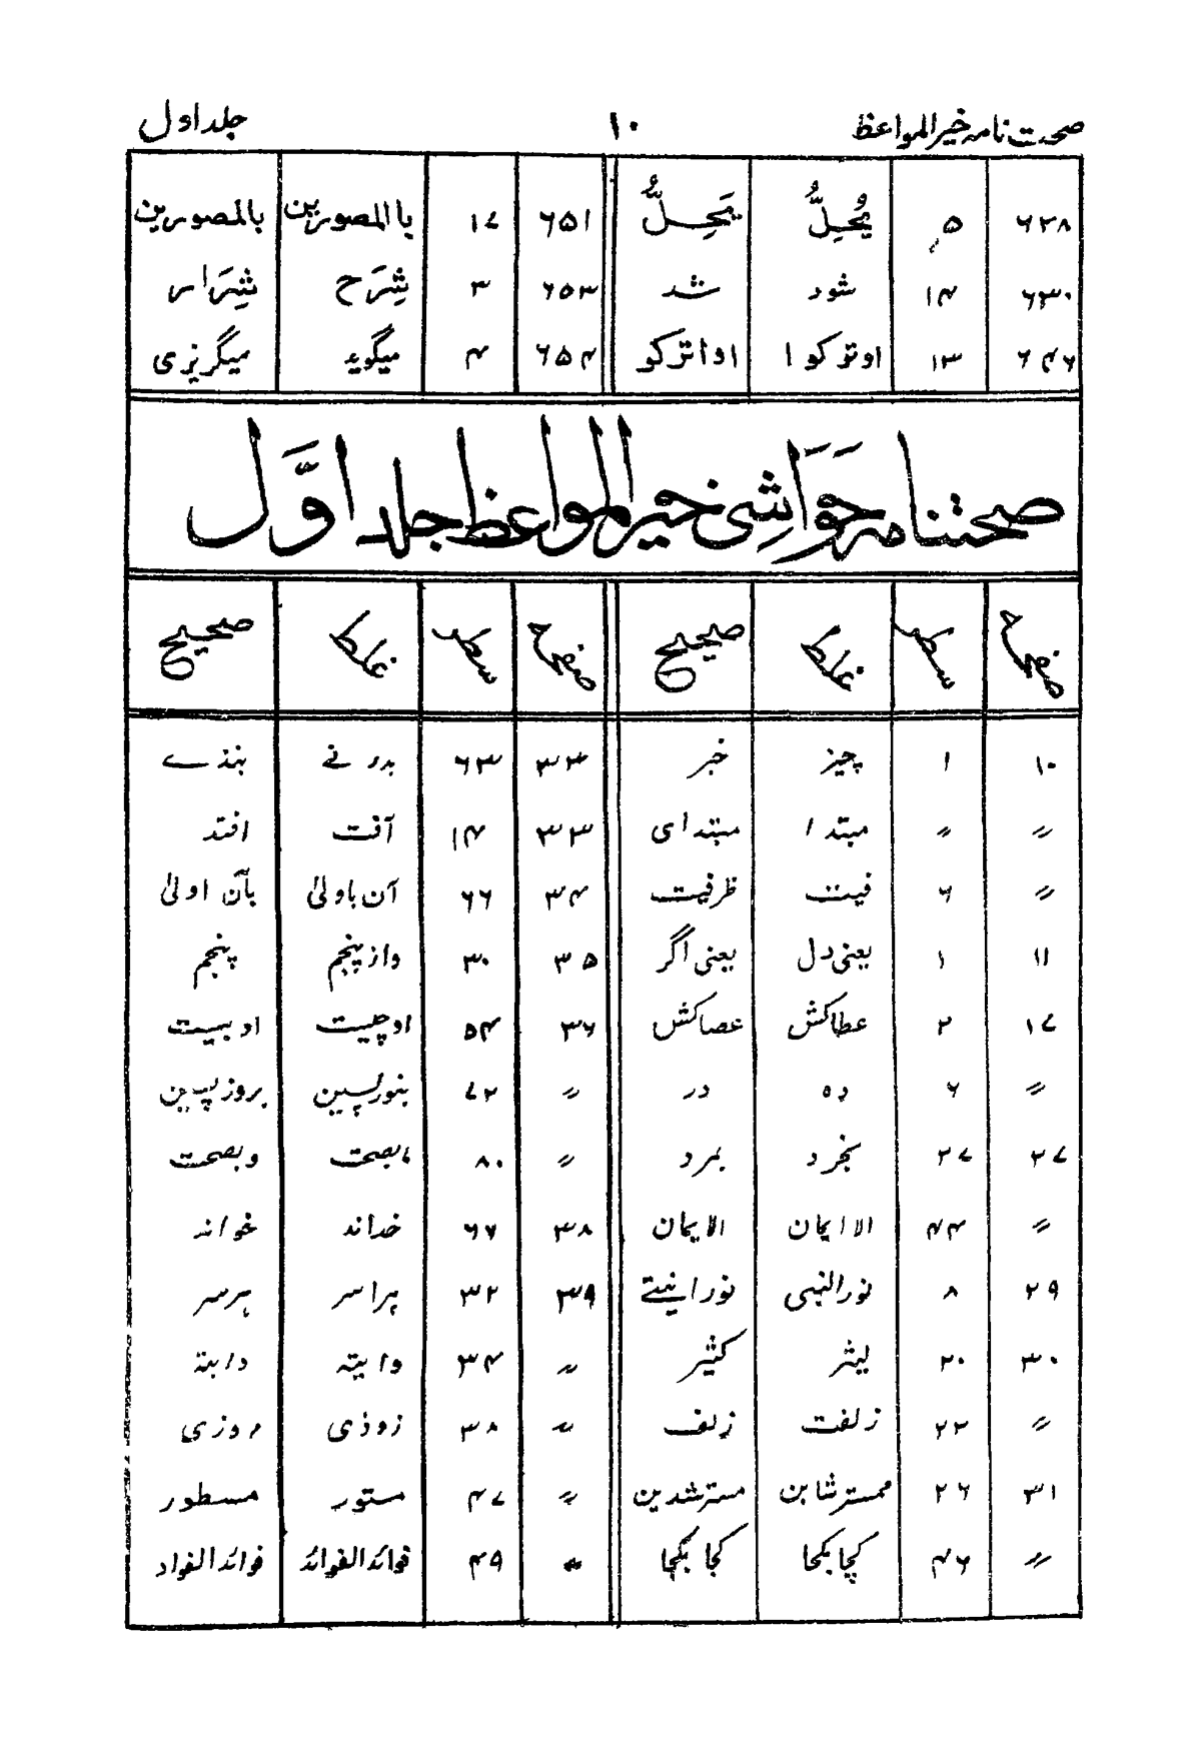 صحت نامہ خیر المواعظ ۱۰ جلد اول
۶۲۸ ۵ یُحِلُّ یَحِلُّ ۶۵۱ ۱۷ باالمصورین بالمصورین
۶۳۰ ۱۴ شود شد ۶۵۳ ۳ شِرَح شِرَار
۶۴۶ ۱۳ اوترکوا اواترکو ۶۵۴ ۴ میگوید میگریزی
صحتنامہ حَوَاشِی خیر المواعظ جلد اوَّل
صفحہ سطر غلط صحیح صفحہ سطر غلط صحیح
۱۰ ۱ چیز خبر ۳۳ ۶۳ بدرنے بندے
〃 〃 مبتدا مبتدای ۳۳ ۱۴ آفت افتد
〃 ۶ فیت ظرفیت ۳۴ ۶۶ آن باولیٰ بآن اولیٰ
۱۱ ۱ یعنی دل یعنی اگر ۳۵ ۳۰ واز پنجم پنجم
۱۷ ۲ عطاکش عصاکش ۳۶ ۵۴ اوچیست اوبیست
〃 ۶ دہ در 〃 ۷۲ بنورپسین بروز پسین
۲۷ ۲۷ بخرد بمرد 〃 ۸۰ بصحت وبصحت
〃 ۴۴ الا ایمان الایمان ۳۸ ۶۷ خداند خواند
۲۹ ۸ نورالنبی نورانیتے ۳۹ ۳۲ براسر برسر
۳۰ ۲۰ لیثر کثیر 〃 ۳۴ وابیتہ دابتہ
〃 ۲۲ زلفت زلف 〃 ۳۸ زوذی روزی
۳۱ ۲۶ ممسترشابن مسترشدین 〃 ۴۷ مستور مسطور
〃 ۴۶ کچا بکجا کجا بکجا 〃 ۴۹ فوائدالفوائد فوائدالفواد